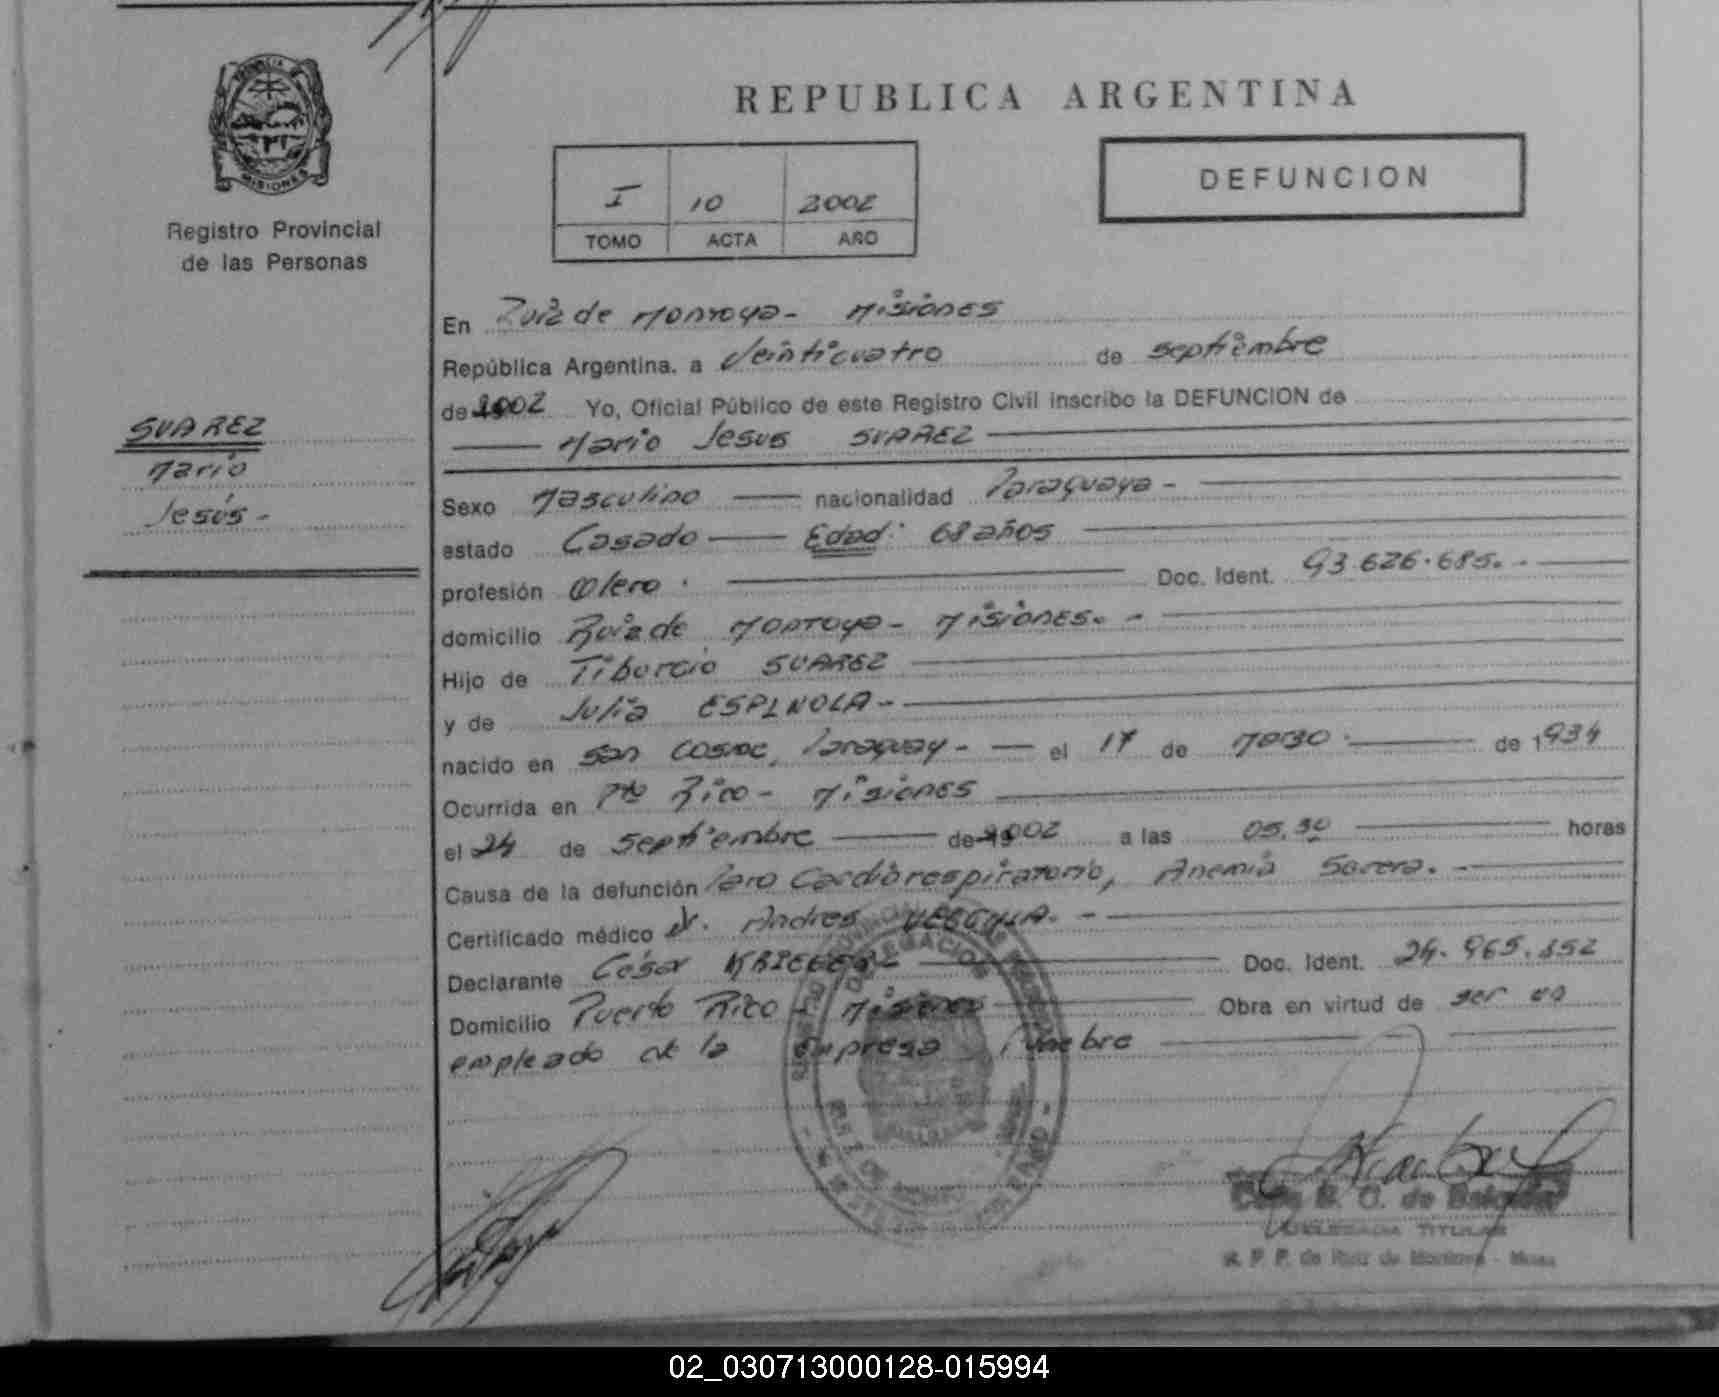 PROVINCIA DE
MISIONES
Registro Provincial
de las Personas
SUAREZ
Mario
Jesús -
REPUBLICA ARGENTINA
I 10 2002
TOMO ACTA AÑO
DEFUNCION
En Ruiz de Montoya - Misiones
República Argentina, a Veinticuatro de septiembre
de 2002 Yo, Oficial Público de este Registro Civil inscribo la DEFUNCION de
Mario Jesus SUAREZ
Sexo Masculino nacionalidad Paraguaya -
estado Casado Edad: 68 años
profesión Olero. Doc. Ident. 93.626.685. -
domicilio Ruiz de Montoya - Misiones. -
Hijo de Tiburcio SUAREZ
y de Julia ESPINOLA -
nacido en San Cosme, Paraguay - el 17 de Marzo. de 1934
Ocurrida en Pto Rico - Misiones
el 24 de Septiembre de 2002 a las 05.30 horas
Causa de la defunción Paro Cardiorespiratorio, Anemia Severa. -
Certificado médico Dr. Andres
Declarante César KRIEGER Doc. Ident. 24.965.352
Domicilio Puerto Rico - Misiones Obra en virtud de ser un
empleado de la empresa Funebre
DELEGACION
DELEGADA TITULAR
R. P. P. de Ruiz de Montoya - Mnes
02_030713000128-015994